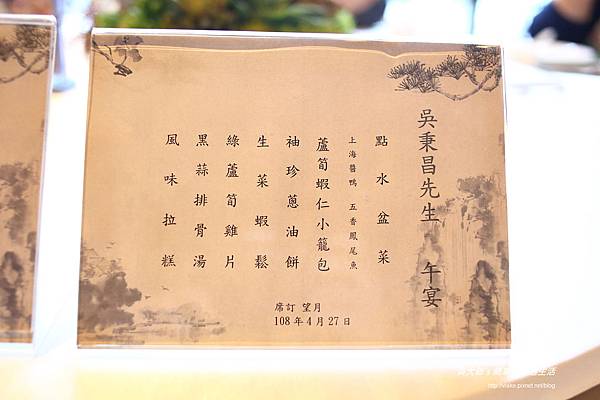 吳秉昌先生 午宴
點水盆菜
上海醬鴨 五香鳳尾魚
蘆筍蝦仁小籠包
袖珍蔥油餅
生菜蝦鬆
綠蘆筍雞片
黑蒜排骨湯
風味拉糕
席訂 望月
108年4月27日
http://viake.pixnet.net/blog